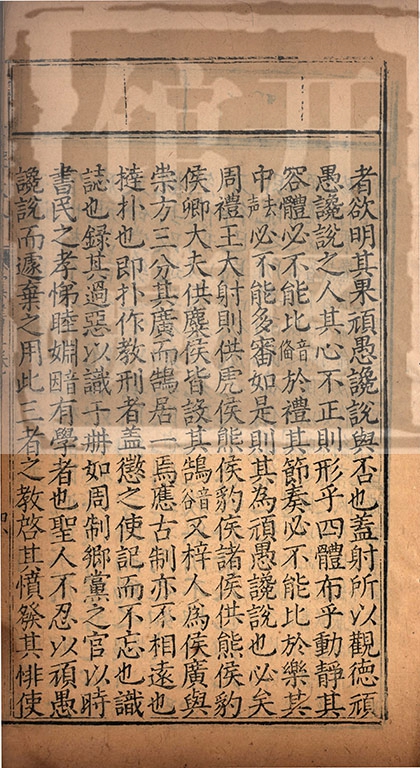 者欲明其果頑愚讒説與否也蓋射所以觀德頑
愚讒説之人其心不正則形乎四體布乎動靜其
容體必不能比音偹於禮其節奏必不能比於樂其
中去聲必不能多審如是則其為頑愚讒説也必矣
周禮王大射則供虎侯熊侯豹侯諸侯供熊侯豹
侯卿大夫供麋侯皆設其鵠音谷又梓人為侯廣與
崇方三分其廣而鵠居一焉應古制亦不相遠也
撻扑也即扑作教刑者盖懲之使記而不忘也識
誌也録其過惡以識于冊如周制鄉黨之官以時
書民之孝悌睦婣有學者也聖人不忍以頑愚
讒説而遽棄之用此三者之教啓其憤發其悱使